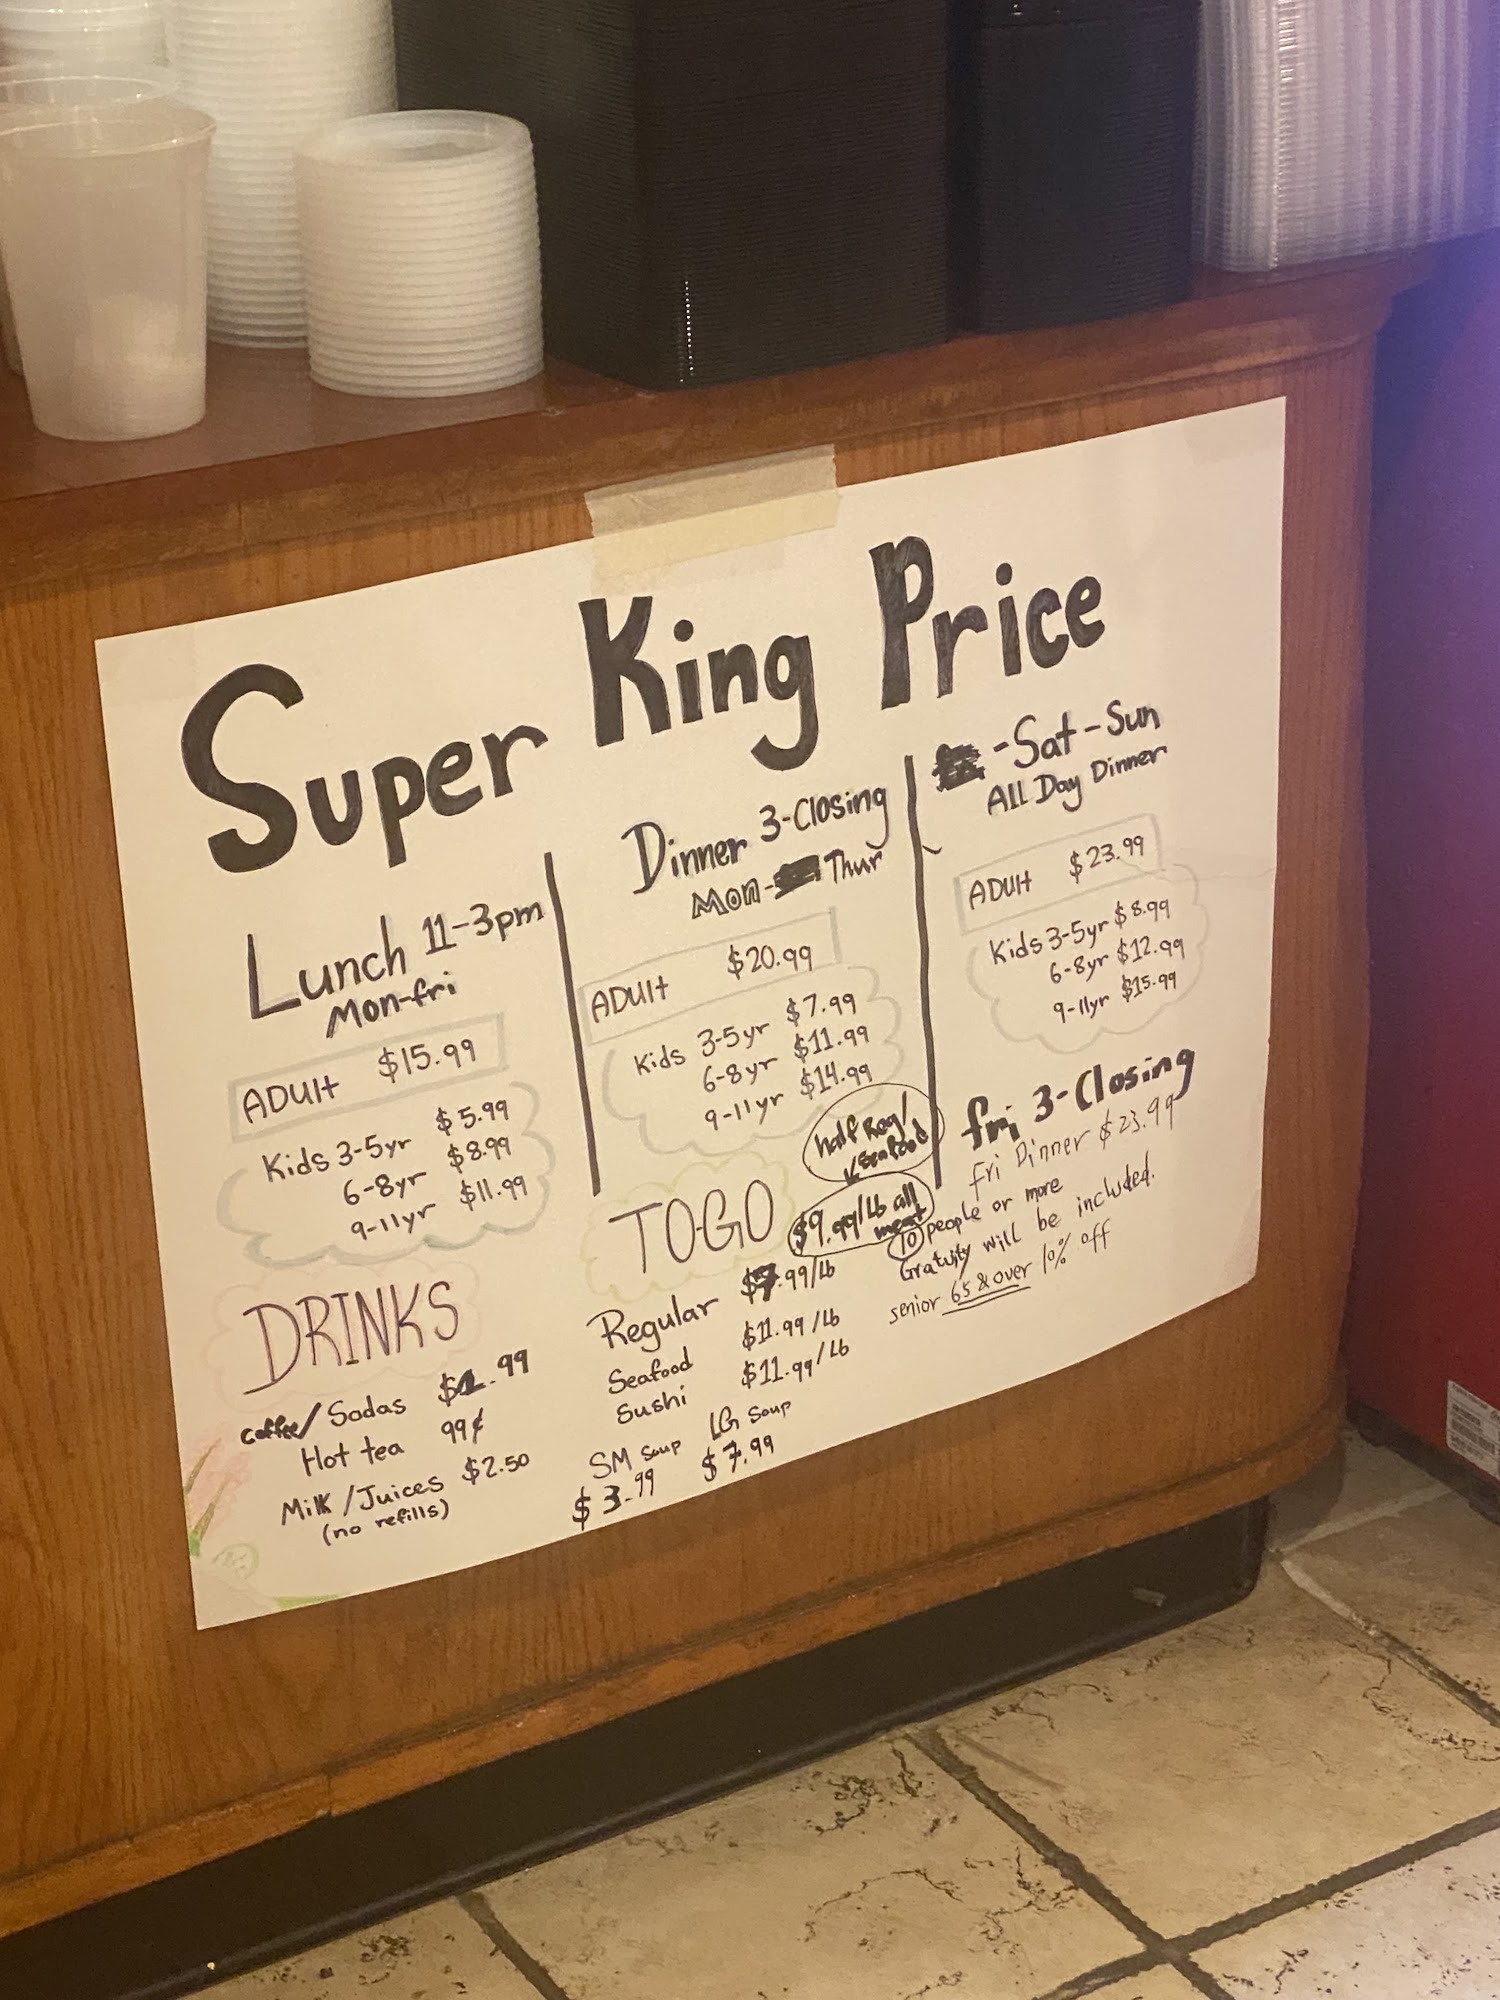 Super King Price
Lunch 11-3pm
Mon-fri
ADUlt $15.99
Kids 3-5yr $5.99
6-8yr $8.99
9-11yr $11.99
Dinner 3-Closing
Mon- Thur
ADUlt $20.99
Kids 3-5yr $7.99
6-8yr $11.99
9-11yr $14.99
-Sat-Sun
All Day Dinner
ADUlt $23.99
Kids 3-5yr $8.99
6-8yr $12.99
9-11yr $15.99
fri 3-Closing
fri Dinner $23.99
10 people or more
Gratuity will be included.
senior 65 & over 10% off
DRINKS
coffee/Sodas $1.99
Hot tea 99¢
Milk/Juices $2.50
(no refills)
TO-GO
half Reg/
seafood
$9.99/Lb all
meat
Regular $7.99/Lb
Seafood $11.99/Lb
Sushi $11.99/Lb
SM Soup LG Soup
$3.99 $7.99